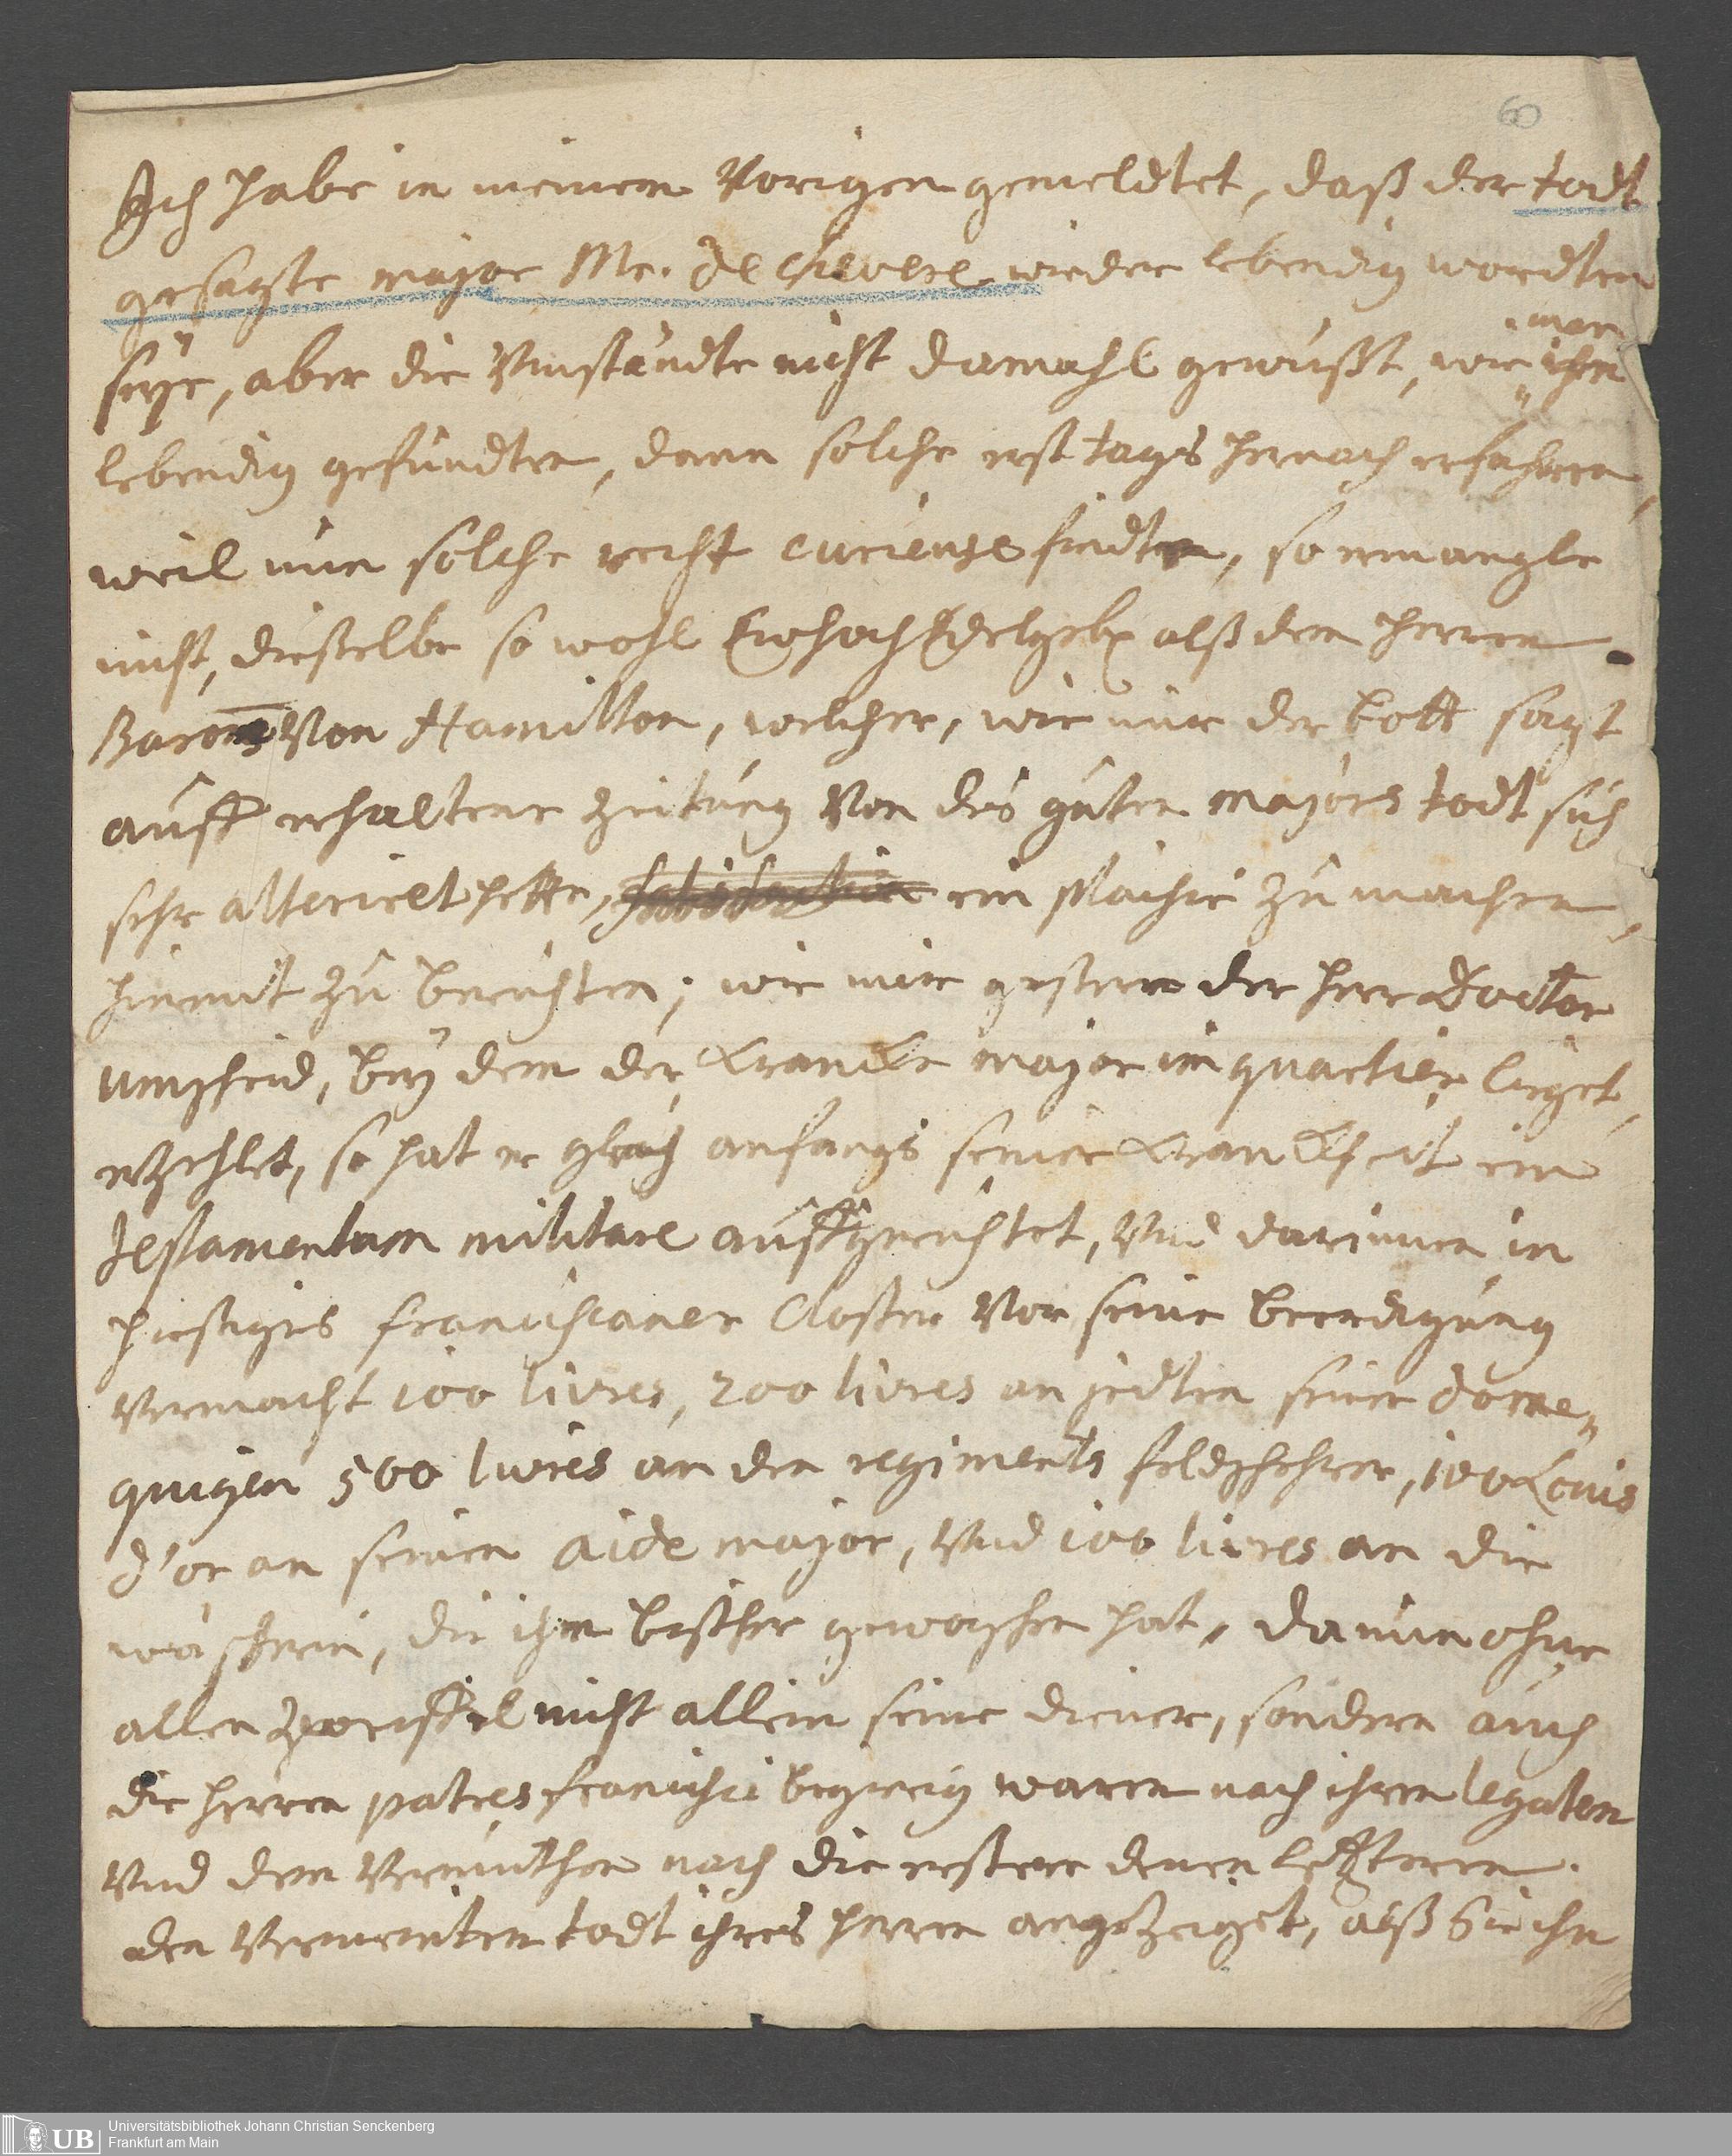 60
Ich habe in meinem Vorigen gemeldtet, daß der todt
gesagte major Mr. de cheverel wieder lebendig wordten
seÿe, aber die Vmständte nicht damahl gewußt, wie man ihn
lebendig gefundten, dann solche erst tags hernach erfahren,
weil nun solche recht curieuse findte, so ermangle
nicht, dieselbe so wohl Ewhoch Edelgeb alß dem herren
Baron Von Hamilton, welcher, wie mir der bott sagt
auff erhaltene zeitung Von des guten majors todt sich
sehr alteriret hette, ein plaisir zu machen,
hiemit zu berichten; wie mir gestern der herr Doctor
Umgscheid, beÿ dem der krancke major im quartier lieget,
erzehlet, so hat er gleich anfangs seiner kranckheit ein
testamentum militare auffgerichtet, Vnd darinnen in
hiesiges franciscaner Closter Vor seine beerdigung
Vermacht 100 livres, 200 livres an jedten seiner dome,,
quiqen 500 livres an den regiments feldscherer, 100 Louis
d'or an seinen aide major, Vnd 100 livres an die
wäscherin, die ihm bißher gewaschen hat, da nun ohne
allen zweiffel nicht allein seine diener, sondern auch
die herren patres francisci begierig waren nach ihren legaten
Vnd dem Vermuthen nach die erstere denen letzteren
den Vermeinten todt ihres herren angezeiget, alß Sie ihn
UB
Universitätsbibliothek Johann Christian Senckenberg
Frankfurt am Main